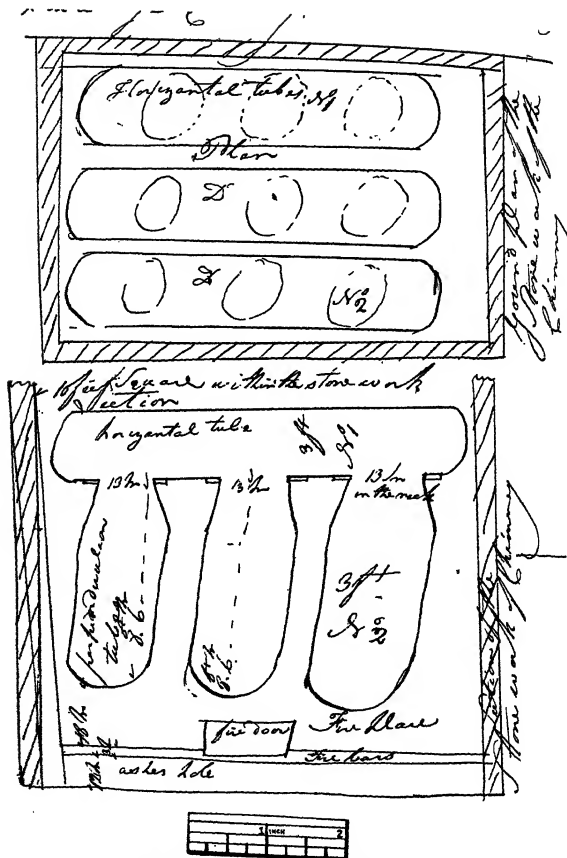 Horizantal tubes No 1
Plan
Do
Do
No 2
Ground plan of the
Stone work of the
Chimny
10 feet Square within the stone work
Section
horizantal tube
3 ft
No 1
13 In
13 In
13 In
in the neck
perpindicular
tubes
3 ft
No 2
fire door
Fire place
Fire bars
ashes hole
Section of the
Stone work of Chimney
1 INCH 2